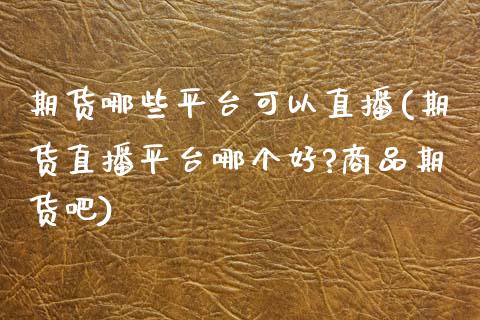 期货哪些平台可以直播(期
货直播平台哪个好?商品期
货吧)